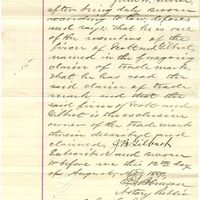 after being duly sworn
according to law, deposes
and says that he is one
of the members of the
firm of Scott and Gilbert
named in the foregoing
claim of trade mark,
that he has read the
said claim of trade
mark and that the
said firm of Scott and
Gilbert is the exclusive
owner of the trade mark
therein described and
claimed. Gilbert
Subscribed and sworn
to before me this 19th day
of August,
Notary Public